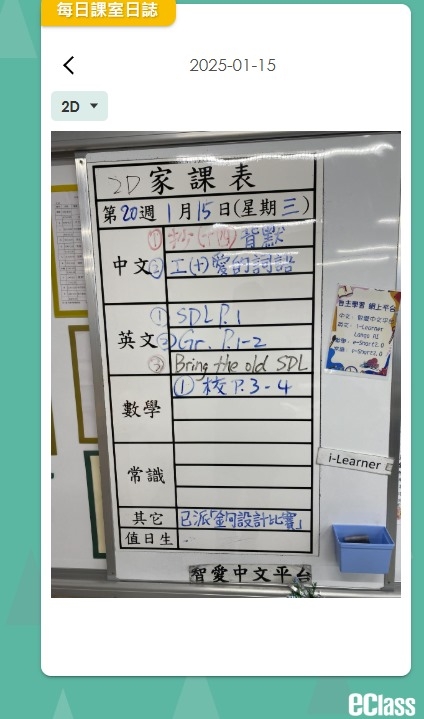 每日課室日誌
2025-01-15
2D
2D 家課表
第20週 1月15日(星期三)
中文
背默
② 工(十)愛的詞語
英文
① SDL P.1
② Gr. P.1-2
③ Bring the old SDL
數學
① 校 P.3-4
常識
其它
已派「設計比賽」
值日生
自主學習 網上平台
i-Learner
i-Learner
智愛中文平台
eClass